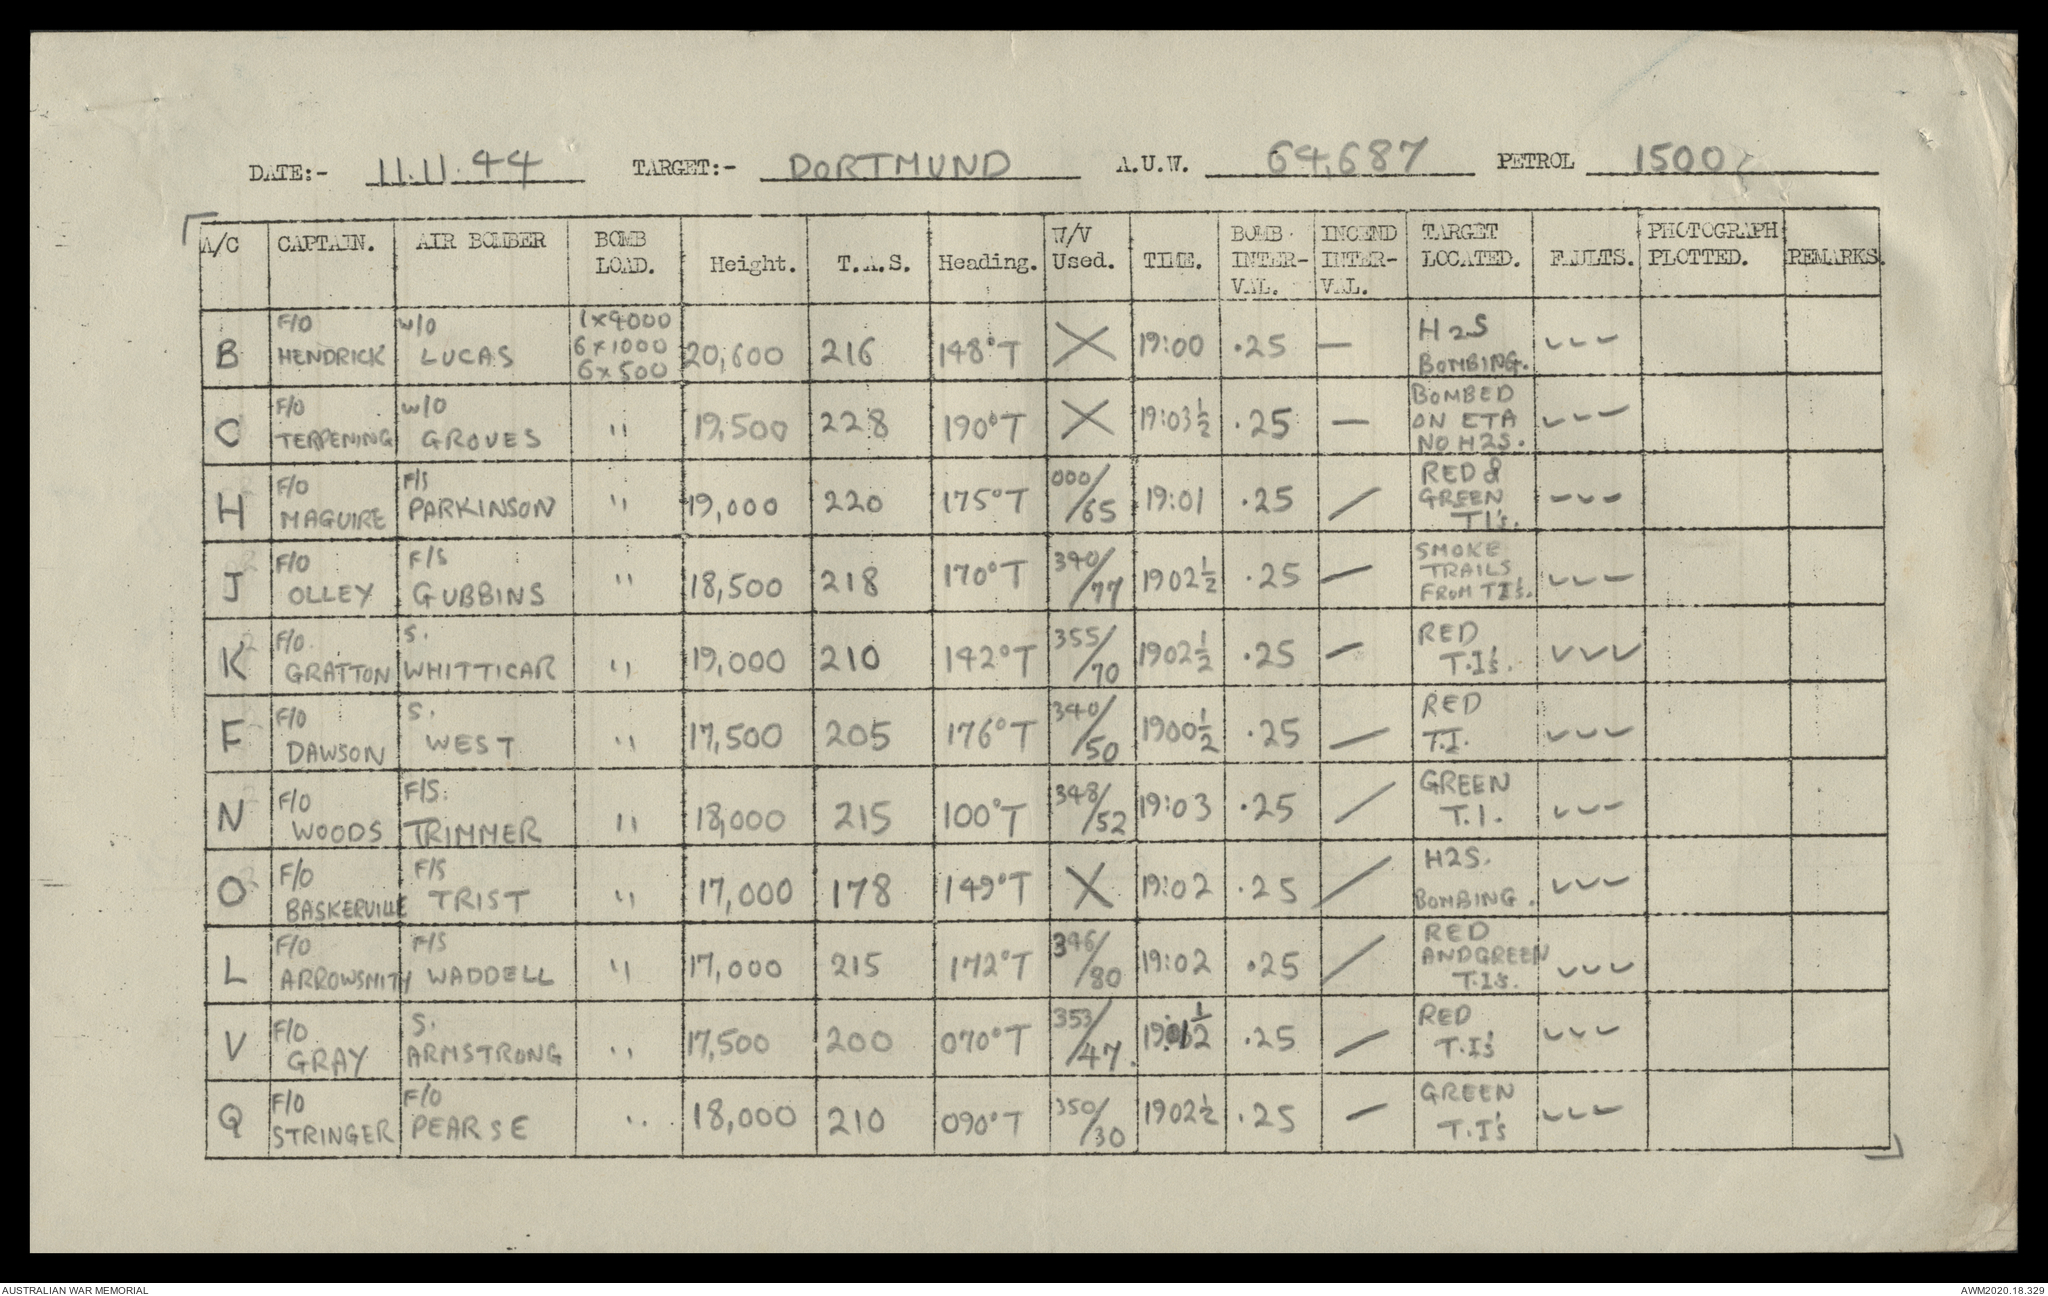 DATE:- 11.11.44 TARGET:- DORTMUND A.U.W. 64,687 PETROL 1500
A/C CAPTAIN. AIR BOMBER BOMB LOAD. Height. T.A.S. Heading. W/V Used. TIME. BOMB INTER-VAL. INCEND INTER-VAL. TARGET LOCATED. FAULTS. PHOTOGRAPH PLOTTED. REMARKS.
B F/O HENDRICK W/O LUCAS 1x4000 6x1000 6x500 20,600 216 148°T X 19:00 .25 — H2S BOMBING. ✓✓✓
C F/O TERPENING W/O GROVES " 19,500 228 190°T X 19:03½ .25 — BOMBED ON ETA NO H2S. ✓✓✓
H F/O MAGUIRE F/S PARKINSON " 19,000 220 175°T 000/65 19:01 .25 / RED & GREEN T I's. ✓✓✓
J F/O OLLEY F/S GUBBINS " 18,500 218 170°T 340/77 1902½ .25 — SMOKE TRAILS FROM TI's. ✓✓✓
K F/O. GRATTON S. WHITTICAR " 19,000 210 142°T 355/70 1902½ .25 — RED T.I's. ✓✓✓
F F/O DAWSON S. WEST " 17,500 205 176°T 340/50 1900½ .25 — RED T.I. ✓✓✓
N F/O WOODS F/S. TRIMMER " 18,000 215 100°T 348/52 19:03 .25 / GREEN T.I. ✓✓✓
O F/O BASKERVILLE F/S TRIST " 17,000 178 149°T X 19:02 .25 / H2S. BOMBING. ✓✓✓
L F/O ARROWSMITH F/S WADDELL " 17,000 215 172°T 346/80 19:02 .25 / RED AND GREEN T.I's. ✓✓✓
V F/O GRAY S. ARMSTRONG " 17,500 200 070°T 353/47. 1901½ .25 / RED T.I's ✓✓✓
Q F/O STRINGER F/O PEARSE " 18,000 210 090°T 350/30 1902½ .25 — GREEN T.I's ✓✓✓
AUSTRALIAN WAR MEMORIAL AWM2020.18.329